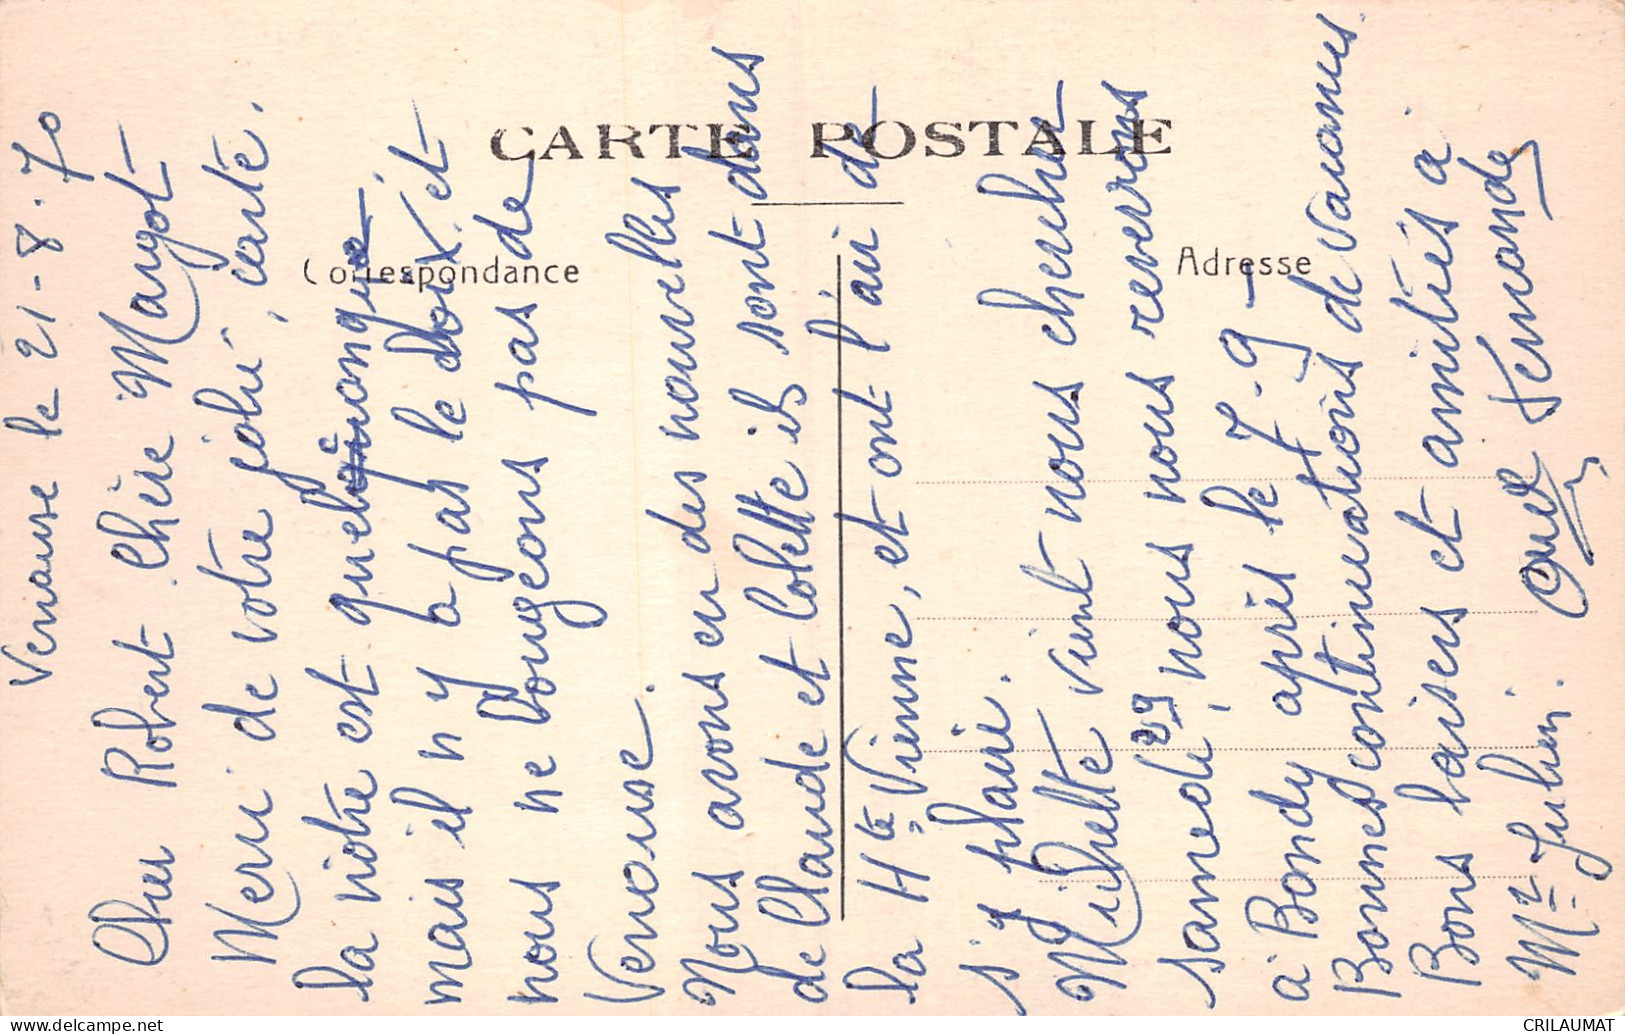 CARTE POSTALE
Correspondance
Adresse
Venouse le 21-8.70
Cher Robert Chère Margot
Merci de votre jolie, carte.
la nôtre est quelquonque.
mais il n'y a pas le choix. et
nous ne bougeons pas de
Venouse.
Nous avons eu des nouvelles
de Claude et Colette ils sont dans
la Hte Vienne, et ont l'air de
s'y plaire.
Michelle vient nous chercher
samedi 29, nous nous reverrons
à Bondy après le 7-9-
Bonnes continuations de vacances.
Bons baisers et amitiés à
Mr Julien. André Fernande
CRILAUMAT